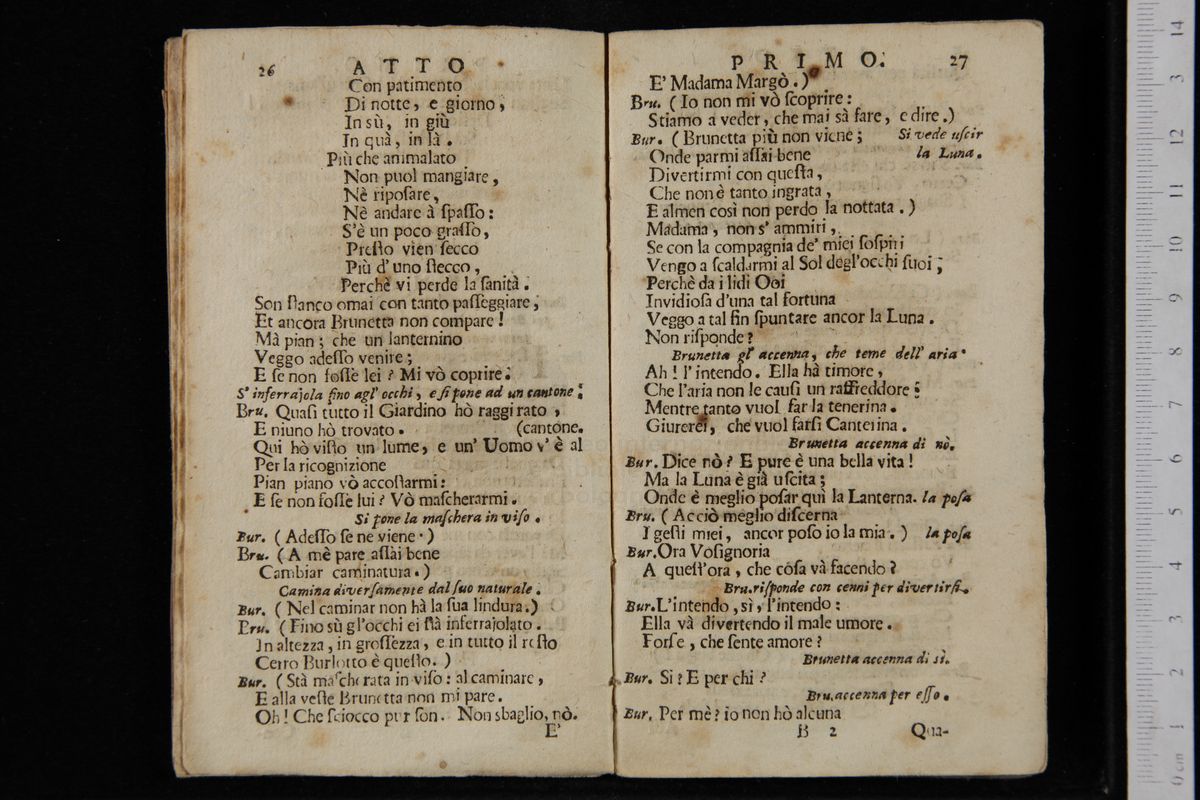 26 ATTO
Con patimento
Di notte, e giorno,
In sù, in giù
In quà, in là.
Più che animalato
Non puol mangiare,
Nè ripoſare,
Nè andare à ſpaſſo:
S'è un poco graſſo,
Preſto vien ſecco
Più d'uno ſtecco,
Perchè vi perde la ſanità.
Son ſtanco omai con tanto paſſeggiare,
Et ancora Brunetta non compare!
Mà pian; che un lanternino
Veggo adeſſo venire;
E ſe non foſſe lei? Mi vò coprire.
S' inferrajola fino agl' occhi, e ſi pone ad un cantone.
Bru. Quaſi tutto il Giardino hò raggirato,
E niuno hò trovato. (cantone.
Qui hò viſto un lume, e un' Uomo v' è al
Per la ricognizione
Pian piano vò accoſtarmi:
E ſe non foſſe lui? Vò maſcherarmi.
Si pone la maſchera in viſo.
Bur. (Adeſſo ſe ne viene.)
Bru. (A mè pare aſſai bene
Cambiar caminatura.)
Camina diverſamente dal ſuo naturale.
Bur. (Nel caminar non hà la ſua lindura.)
Bru. (Fino sù gl'occhi ei ſtà inferrajolato.
In altezza, in groſſezza, e in tutto il reſto
Certo Burlotto è queſto.)
Bur. (Stà maſcherata in viſo: al caminare,
E alla veſte Brunetta non mi pare.
Oh! Che ſciocco pur ſon. Non sbaglio, nò.
E'
PRIMO. 27
E' Madama Margò.)
Bru. (Io non mi vò ſcoprire:
Stiamo a veder, che mai sà fare, e dire.)
Bur. (Brunetta più non viene; Si vede uſcir
Onde parmi aſſai bene la Luna.
Divertirmi con queſta,
Che non è tanto ingrata,
E almen così non perdo la nottata.)
Madama, non s' ammiri,
Se con la compagnia de' miei ſoſpiri
Vengo a ſcaldarmi al Sol degl'occhi ſuoi;
Perchè da i lidi Ooi
Invidioſa d'una tal fortuna
Veggo a tal fin ſpuntare ancor la Luna.
Non riſponde?
Brunetta gl' accenna, che teme dell' aria.
Ah! l'intendo. Ella hà timore,
Che l'aria non le cauſi un raffreddore:
Mentre tanto vuol far la tenerina.
Giurerei, che vuol farſi Canterina.
Brunetta accenna di nò.
Bur. Dice nò? E pure è una bella vita!
Ma la Luna è già uſcita;
Onde è meglio poſar quì la Lanterna. la poſa
Bru. (Acciò meglio diſcerna
I geſti miei, ancor poſo io la mia.) la poſa
Bur. Ora Voſignoria
A queſt'ora, che coſa và facendo?
Bru. riſponde con cenni per divertirſi.
Bur. L'intendo, sì, l'intendo:
Ella và divertendo il male umore.
Forſe, che ſente amore?
Brunetta accenna di sì.
Bur. Si? E per chi?
Bru. accenna per eſſo.
Bur. Per mè? io non hò alcuna
B 2 Qua-